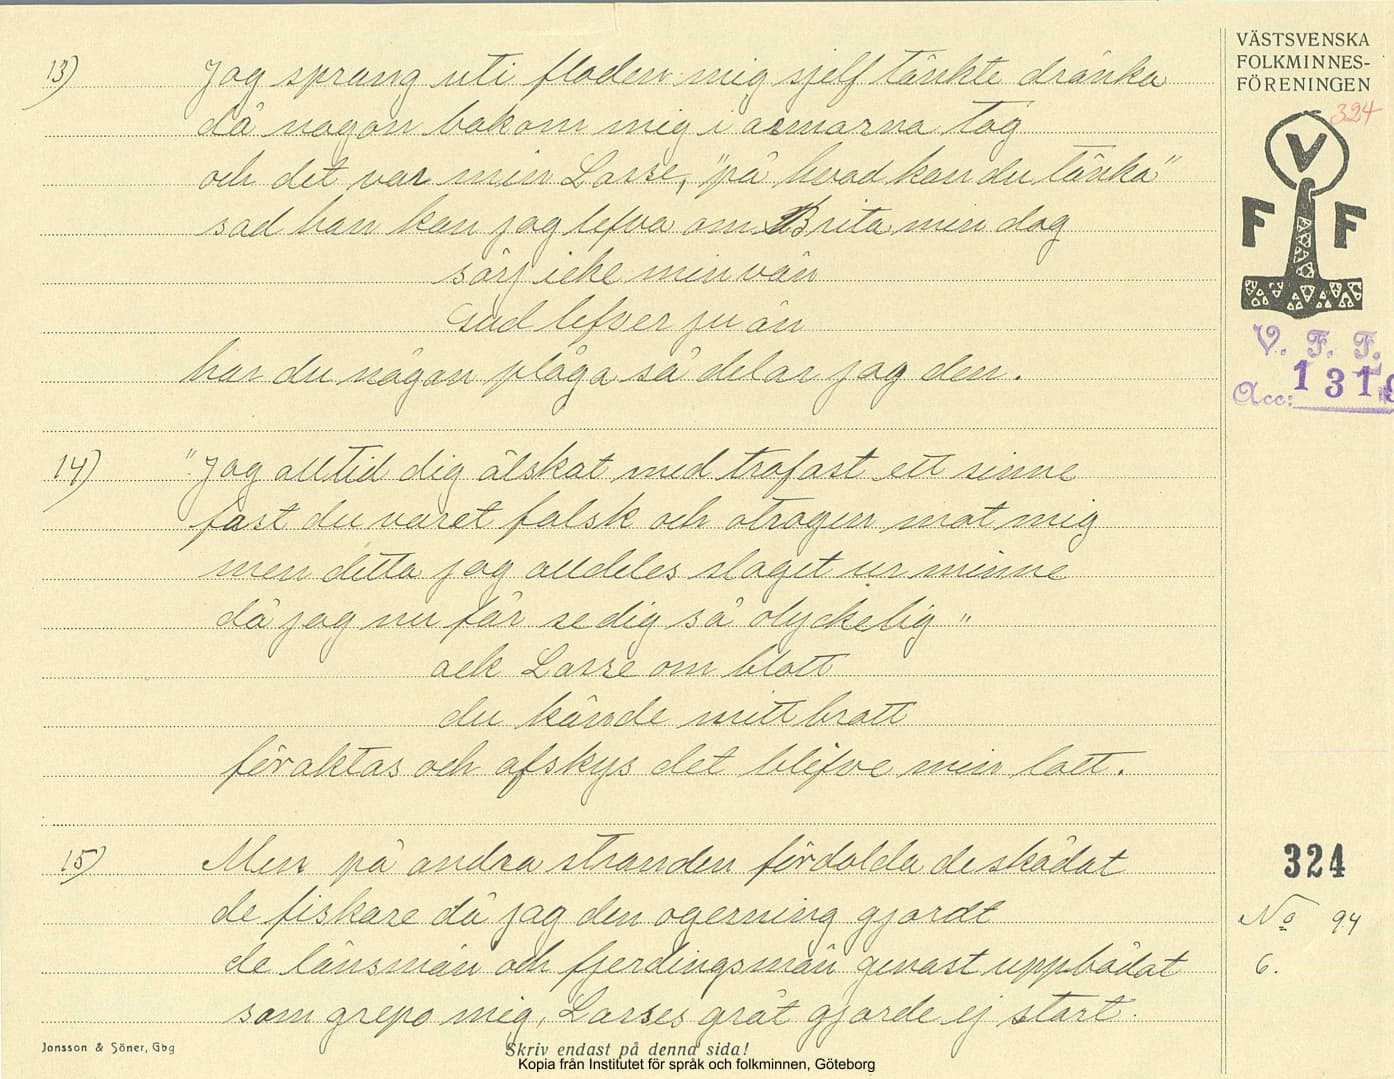 VÄSTSVENSKA
FOLKMINNES-
FÖRENINGEN
324
V
F F
V. F. F.
Acc: 1319
13) Jag sprang uti floden mig sjelf tänkte dränka
då någon bakom mig i armarna tog
och det var min Lasse, "på hvad kan du tänka"
sad han kan jag lefva om Brita min dog
sörj icke min vän
Gud lefver ju än
har du någon plåga så delar jag den.
14) "Jag alltid dig älskat med trofast ett sinne
fast du varet falsk och otrogen mot mig
men detta jag alldeles slaget ur minne
då jag nu får se dig så olyckelig"
ack Lasse om blott
du kände mitt brott
föraktas och afskys det blifve min lott.
15) Men på andra stranden fördolda de skådat
de fiskare då jag den ogerning gjordt
de länsmän och fjerdingsmän genast uppbådat
som grepo mig, Larses gråt gjorde ej stort.
324
No 94
6.
Jonsson & Söner, Gbg
Skriv endast på denna sida!
Kopia från Institutet för språk och folkminnen, Göteborg